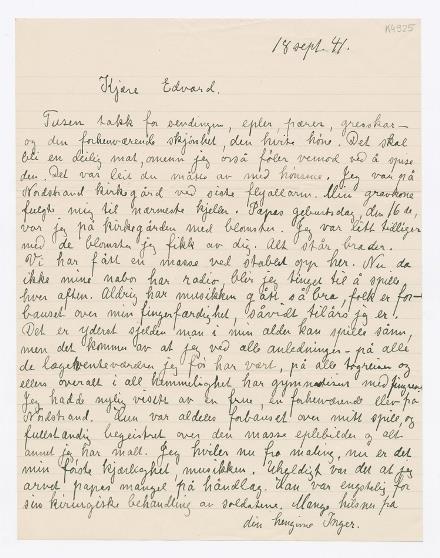 K4925
18 sept. 41.
Kjære Edvard.
Tusen takk for sendingen, epler, pærer, gresskar
og den forhenværende skjønhet, den hvite höne. Det skal
bli en deilig mat, omenn jeg også föler vemod ved å spise
den. Det var leit du måtte av med hönsene. Jeg var på
Nordstrand kirkegård ved siste flyallarm. Min gravkone
fulgte mig til nærmeste kjeller. Papas geburtsdag, den 16de,
var jeg på kirkegården med blomster. Jeg var litt tidligere
med de blomster jeg fikk av dig. Alt står bra der.
Vi har fått en masse ved stablet opp her. Nu da
ikke mine nabor har radio, blir jeg tinget til å spille
hver aften. Aldrig har musikken gått så bra, folk er for-
bauset over min fingerfærdighet, såvidt tilårs jeg er.
Det er yderst sjelden man i min alder kan spille sånn,
men det kommer av at jeg ved alle anledninger - på alle
de lægeventeværelser jeg för har vært, på alle togreiser og
ellers overalt i all hemmelighet har gymnastisert med fingrene.
Jeg hadde nylig visitt av en frue, en forhenværende elev fra
Nordstrand. Hun var aldeles forbauset over mitt spill, og
fullstendig begeistret over den masse eplebilder og alt
annet jeg har malt. Jeg hviler nu fra maling, nu er det
min förste kjærlighet musikken. Uheldigt var det at jeg
arvet papas mangel på håndlag. Han var engstelig for
sin kirurgiske behandling av soldatene. Mange hilsner fra
din hengivne Inger.